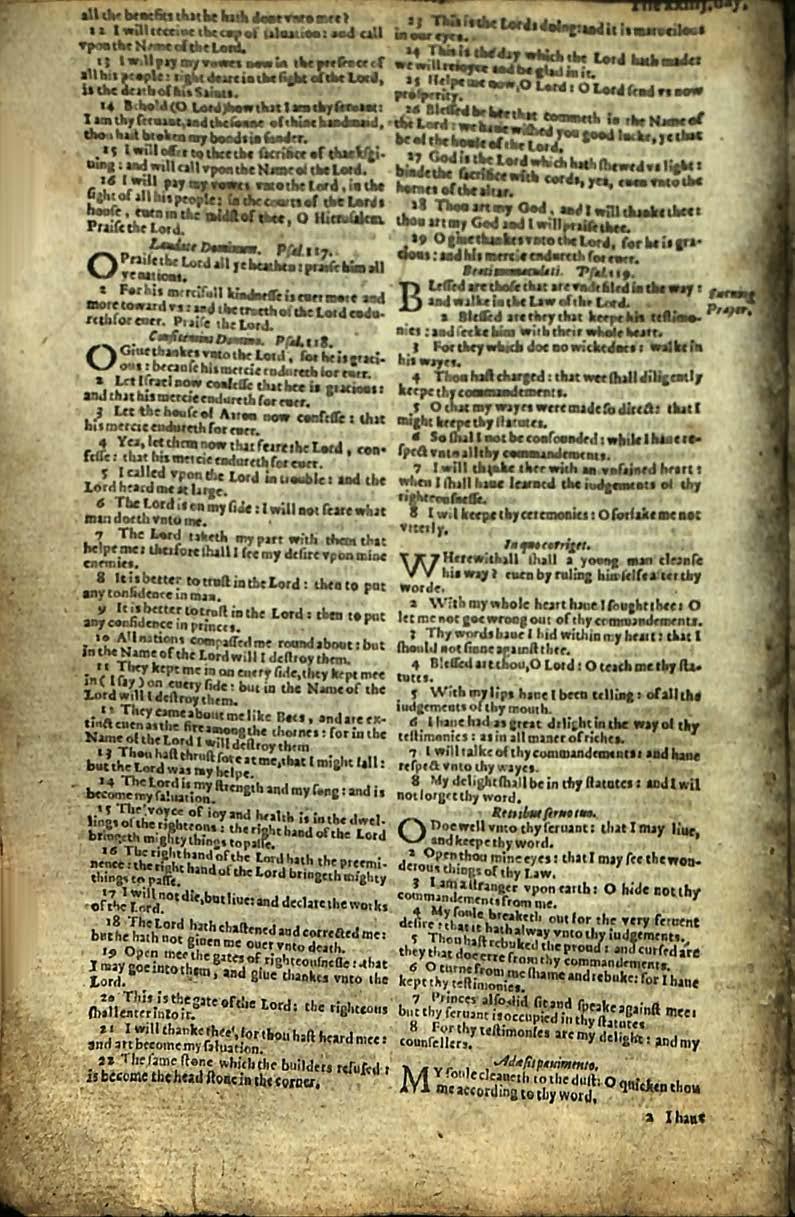 The xxiiij. day.
all the benefits that he hath done vnto mee?
12 I will receiue the cup of saluation: and call
vpon the Name of the Lord.
13 I will pay my vowes now in the presence of
all his people: right deare in the sight of the Lord,
is the death of his Saints.
14 Behold (O Lord) how that I am thy seruant:
I am thy seruant, and the sonne of thine handmaid,
thou hast broken my bonds in sunder.
15 I will offer to thee the sacrifice of thanksgi-
uing: and will call vpon the Name of the Lord.
16 I will pay my vowes vnto the Lord, in the
sight of all his people: in the courts of the Lords
house, euen in the midst of thee, O Hierusalem.
Praise the Lord.
Laudate Dominum. Psal. 117.
O Praise the Lord all ye heathen: praise him all
ye nations.
2 For his mercifull kindnesse is euer more and
more toward vs: and the trueth of the Lord endu-
reth for euer. Praise the Lord.
Confitemini Domino. Psal. 118.
O Giue thankes vnto the Lord, for he is graci-
ous: because his mercie endureth for euer.
2 Let Israel now confesse that hee is gracious:
and that his mercie endureth for euer.
3 Let the house of Aaron now confesse: that
his mercie endureth for euer.
4 Yea, let them now that feare the Lord, con-
fesse: that his mercie endureth for euer.
5 I called vpon the Lord in trouble: and the
Lord heard me at large.
6 The Lord is on my side: I will not feare what
man doeth vnto me.
7 The Lord taketh my part with them that
helpe me: therfore shall I see my desire vpon mine
enemies.
8 It is better to trust in the Lord: then to put
any confidence in man.
9 It is better to trust in the Lord: then to put
any confidence in princes.
10 All nations compassed me round about: but
in the Name of the Lord will I destroy them.
11 They kept me in on euery side, they kept mee
in (I say) on euery side: but in the Name of the
Lord will I destroy them.
12 They came about me like Bees, and are ex-
tinct euen as the fire among the thornes: for in the
Name of the Lord I will destroy them
13 Thou hast thrust sore at me, that I might fall:
but the Lord was my helpe.
14 The Lord is my strength and my song: and is
become my saluation.
15 The voyce of ioy and health is in the dwel-
lings of the righteous: the right hand of the Lord
bringeth mighty things to passe.
16 The right hand of the Lord hath the preemi-
nence: the right hand of the Lord bringeth mighty
things to passe.
17 I will not die, but liue: and declare the works
of the Lord.
18 The Lord hath chastened and corrected me:
but he hath not giuen me ouer vnto death.
19 Open mee the gates of righteousnesse: that
I may goe into them, and giue thankes vnto the
Lord.
20 This is the gate of the Lord: the righteous
shall enter into it.
21 I will thanke thee, for thou hast heard mee:
and art become my saluation.
22 The same stone which the builders refused:
is become the head stone in the corner.
23 This is the Lords doing: and it is marueilous
in our eyes.
24 This is the day which the Lord hath made:
we will reioyce and be glad in it.
25 Helpe me now, O Lord: O Lord send vs now
prosperity.
26 Blessed be hee that commeth in the Name of
the Lord: we haue wished you good lucke, ye that
be of the house of the Lord.
27 God is the Lord which hath shewed vs light:
binde the sacrifice with cords, yea, euen vnto the
hornes of the altar.
28 Thou art my God, and I will thanke thee:
thou art my God and I will praise thee.
29 O giue thankes vnto the Lord, for he is gra-
cious: and his mercie endureth for euer.
Beati immaculati. Psal. 119.
BLessed are those that are vndefiled in the way:
and walke in the Law of the Lord.
Euening
Prayer.
2 Blessed are they that keepe his testimo-
nies: and seeke him with their whole heart.
3 For they which doe no wickednes: walke in
his wayes.
4 Thou hast charged: that wee shall diligently
keepe thy commandements.
5 O that my wayes were made so direct: that I
might keepe thy statutes.
6 So shall I not be confounded: while I haue re-
spect vnto all thy commandements.
7 I will thanke thee with an vnfained heart:
when I shall haue learned the iudgements of thy
righteousnesse.
8 I wil keepe thy ceremonies: O forsake me not
vtterly.
In quo corriget.
WHerewithall shall a young man cleanse
his way? euen by ruling himselfe after thy
worde.
2 With my whole heart haue I sought thee: O
let me not goe wrong out of thy commandements.
3 Thy words haue I hid within my heart: that I
should not sinne against thee.
4 Blessed art thou, O Lord: O teach me thy sta-
tutes.
5 With my lips haue I been telling: of all the
iudgements of thy mouth.
6 I haue had as great delight in the way of thy
testimonies: as in all maner of riches.
7 I will talke of thy commandements: and haue
respect vnto thy wayes.
8 My delight shall be in thy statutes: and I wil
not forget thy word.
Retribue seruo tuo.
O Doe well vnto thy seruant: that I may liue,
and keepe thy word.
2 Open thou mine eyes: that I may see the won-
derous things of thy Law.
3 I am a stranger vpon earth: O hide not thy
commandements from me.
4 My soule breaketh out for the very feruent
desire: that it hath alway vnto thy iudgements.
5 Thou hast rebuked the proud: and cursed are
they that doe erre from thy commandements.
6 O turne from me shame and rebuke: for I haue
kept thy testimonies.
7 Princes also did sit and speake against mee:
but thy seruant is occupied in thy statutes
8 For thy testimonies are my delight: and my
counsellers.
Adhæsit pauimento.
MY soule cleaueth to the dust: O quicken thou
me according to thy word.
2 I haue